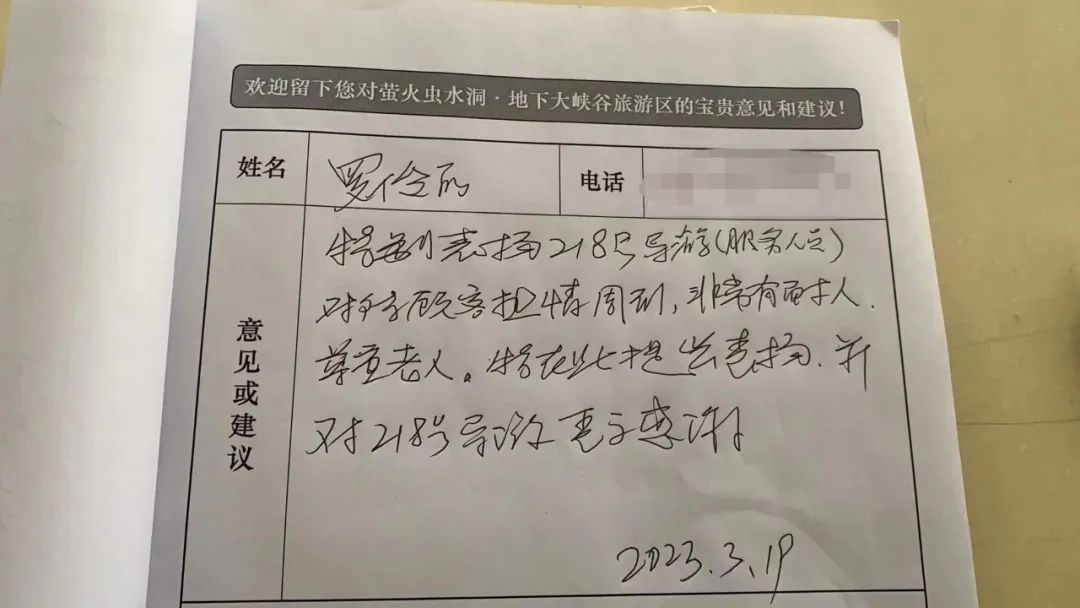 欢迎留下您对萤火虫水洞·地下大峡谷旅游区的宝贵意见和建议!
姓名 罗 电话
意见或建议
特别表扬218号导游(服务人员)
对待顾客 情周到,非常有 人.
尊重老人。特在此提出表扬.并
对218号导游表示感谢
2023.3.19